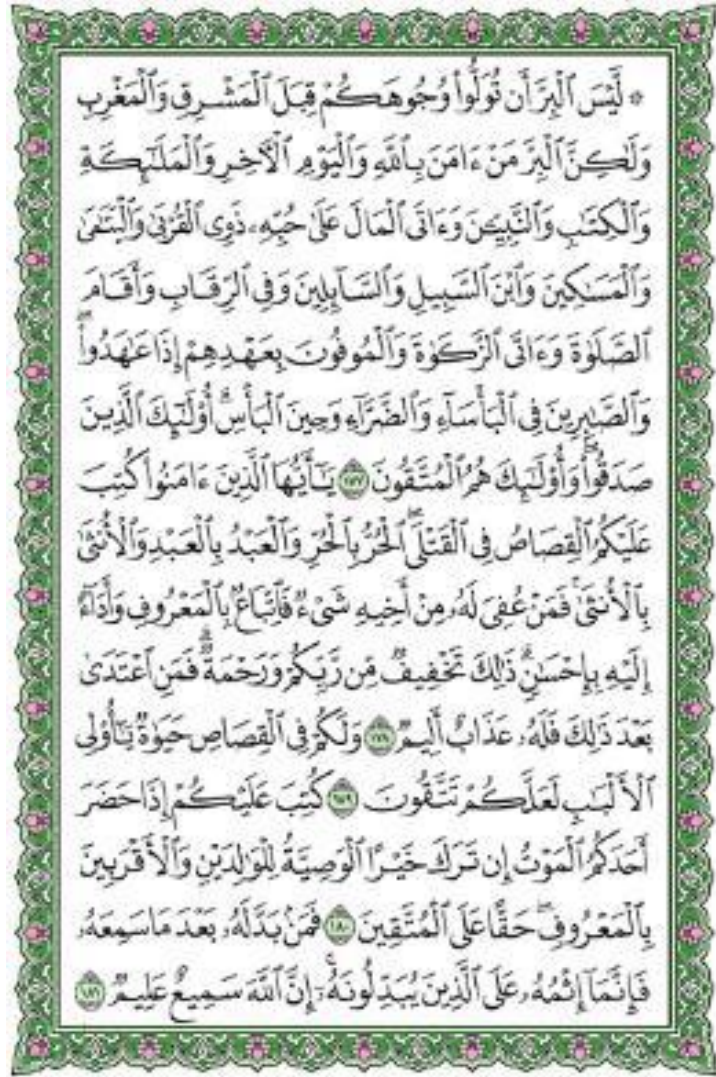 ۞ لَّيۡسَ ٱلۡبِرَّ أَن تُوَلُّواْ وُجُوهَكُمۡ قِبَلَ ٱلۡمَشۡرِقِ وَٱلۡمَغۡرِبِ
وَلَٰكِنَّ ٱلۡبِرَّ مَنۡ ءَامَنَ بِٱللَّهِ وَٱلۡيَوۡمِ ٱلۡأٓخِرِ وَٱلۡمَلَٰٓئِكَةِ
وَٱلۡكِتَٰبِ وَٱلنَّبِيِّـۧنَ وَءَاتَى ٱلۡمَالَ عَلَىٰ حُبِّهِۦ ذَوِي ٱلۡقُرۡبَىٰ وَٱلۡيَتَٰمَىٰ
وَٱلۡمَسَٰكِينَ وَٱبۡنَ ٱلسَّبِيلِ وَٱلسَّآئِلِينَ وَفِي ٱلرِّقَابِ وَأَقَامَ
ٱلصَّلَوٰةَ وَءَاتَى ٱلزَّكَوٰةَ وَٱلۡمُوفُونَ بِعَهۡدِهِمۡ إِذَا عَٰهَدُواْۖ
وَٱلصَّٰبِرِينَ فِي ٱلۡبَأۡسَآءِ وَٱلضَّرَّآءِ وَحِينَ ٱلۡبَأۡسِۗ أُوْلَٰٓئِكَ ٱلَّذِينَ
صَدَقُواْۖ وَأُوْلَٰٓئِكَ هُمُ ٱلۡمُتَّقُونَ ١٧٧ يَٰٓأَيُّهَا ٱلَّذِينَ ءَامَنُواْ كُتِبَ
عَلَيۡكُمُ ٱلۡقِصَاصُ فِي ٱلۡقَتۡلَىۖ ٱلۡحُرُّ بِٱلۡحُرِّ وَٱلۡعَبۡدُ بِٱلۡعَبۡدِ وَٱلۡأُنثَىٰ
بِٱلۡأُنثَىٰۚ فَمَنۡ عُفِيَ لَهُۥ مِنۡ أَخِيهِ شَيۡءٞ فَٱتِّبَاعُۢ بِٱلۡمَعۡرُوفِ وَأَدَآءٌ
إِلَيۡهِ بِإِحۡسَٰنٖۗ ذَٰلِكَ تَخۡفِيفٞ مِّن رَّبِّكُمۡ وَرَحۡمَةٞۗ فَمَنِ ٱعۡتَدَىٰ
بَعۡدَ ذَٰلِكَ فَلَهُۥ عَذَابٌ أَلِيمٞ ١٧٨ وَلَكُمۡ فِي ٱلۡقِصَاصِ حَيَوٰةٞ يَٰٓأُوْلِي
ٱلۡأَلۡبَٰبِ لَعَلَّكُمۡ تَتَّقُونَ ١٧٩ كُتِبَ عَلَيۡكُمۡ إِذَا حَضَرَ
أَحَدَكُمُ ٱلۡمَوۡتُ إِن تَرَكَ خَيۡرًا ٱلۡوَصِيَّةُ لِلۡوَٰلِدَيۡنِ وَٱلۡأَقۡرَبِينَ
بِٱلۡمَعۡرُوفِۖ حَقًّا عَلَى ٱلۡمُتَّقِينَ ١٨٠ فَمَنۢ بَدَّلَهُۥ بَعۡدَ مَا سَمِعَهُۥ
فَإِنَّمَآ إِثۡمُهُۥ عَلَى ٱلَّذِينَ يُبَدِّلُونَهُۥٓۚ إِنَّ ٱللَّهَ سَمِيعٌ عَلِيمٞ ١٨١